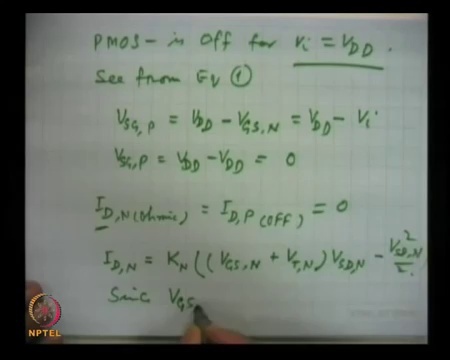 PMOS - is Off for Vi = VDD .
See from Eq ①
VSG,P = VDD - VGS,N = VDD - Vi
VSG,P = VDD - VDD = 0
ID,N (ohmic) = ID,P (OFF) = 0
ID,N = KN ( ( VGS,N + VT,N ) VSD,N - VSD,N²/2
Sinc VGS
NPTEL